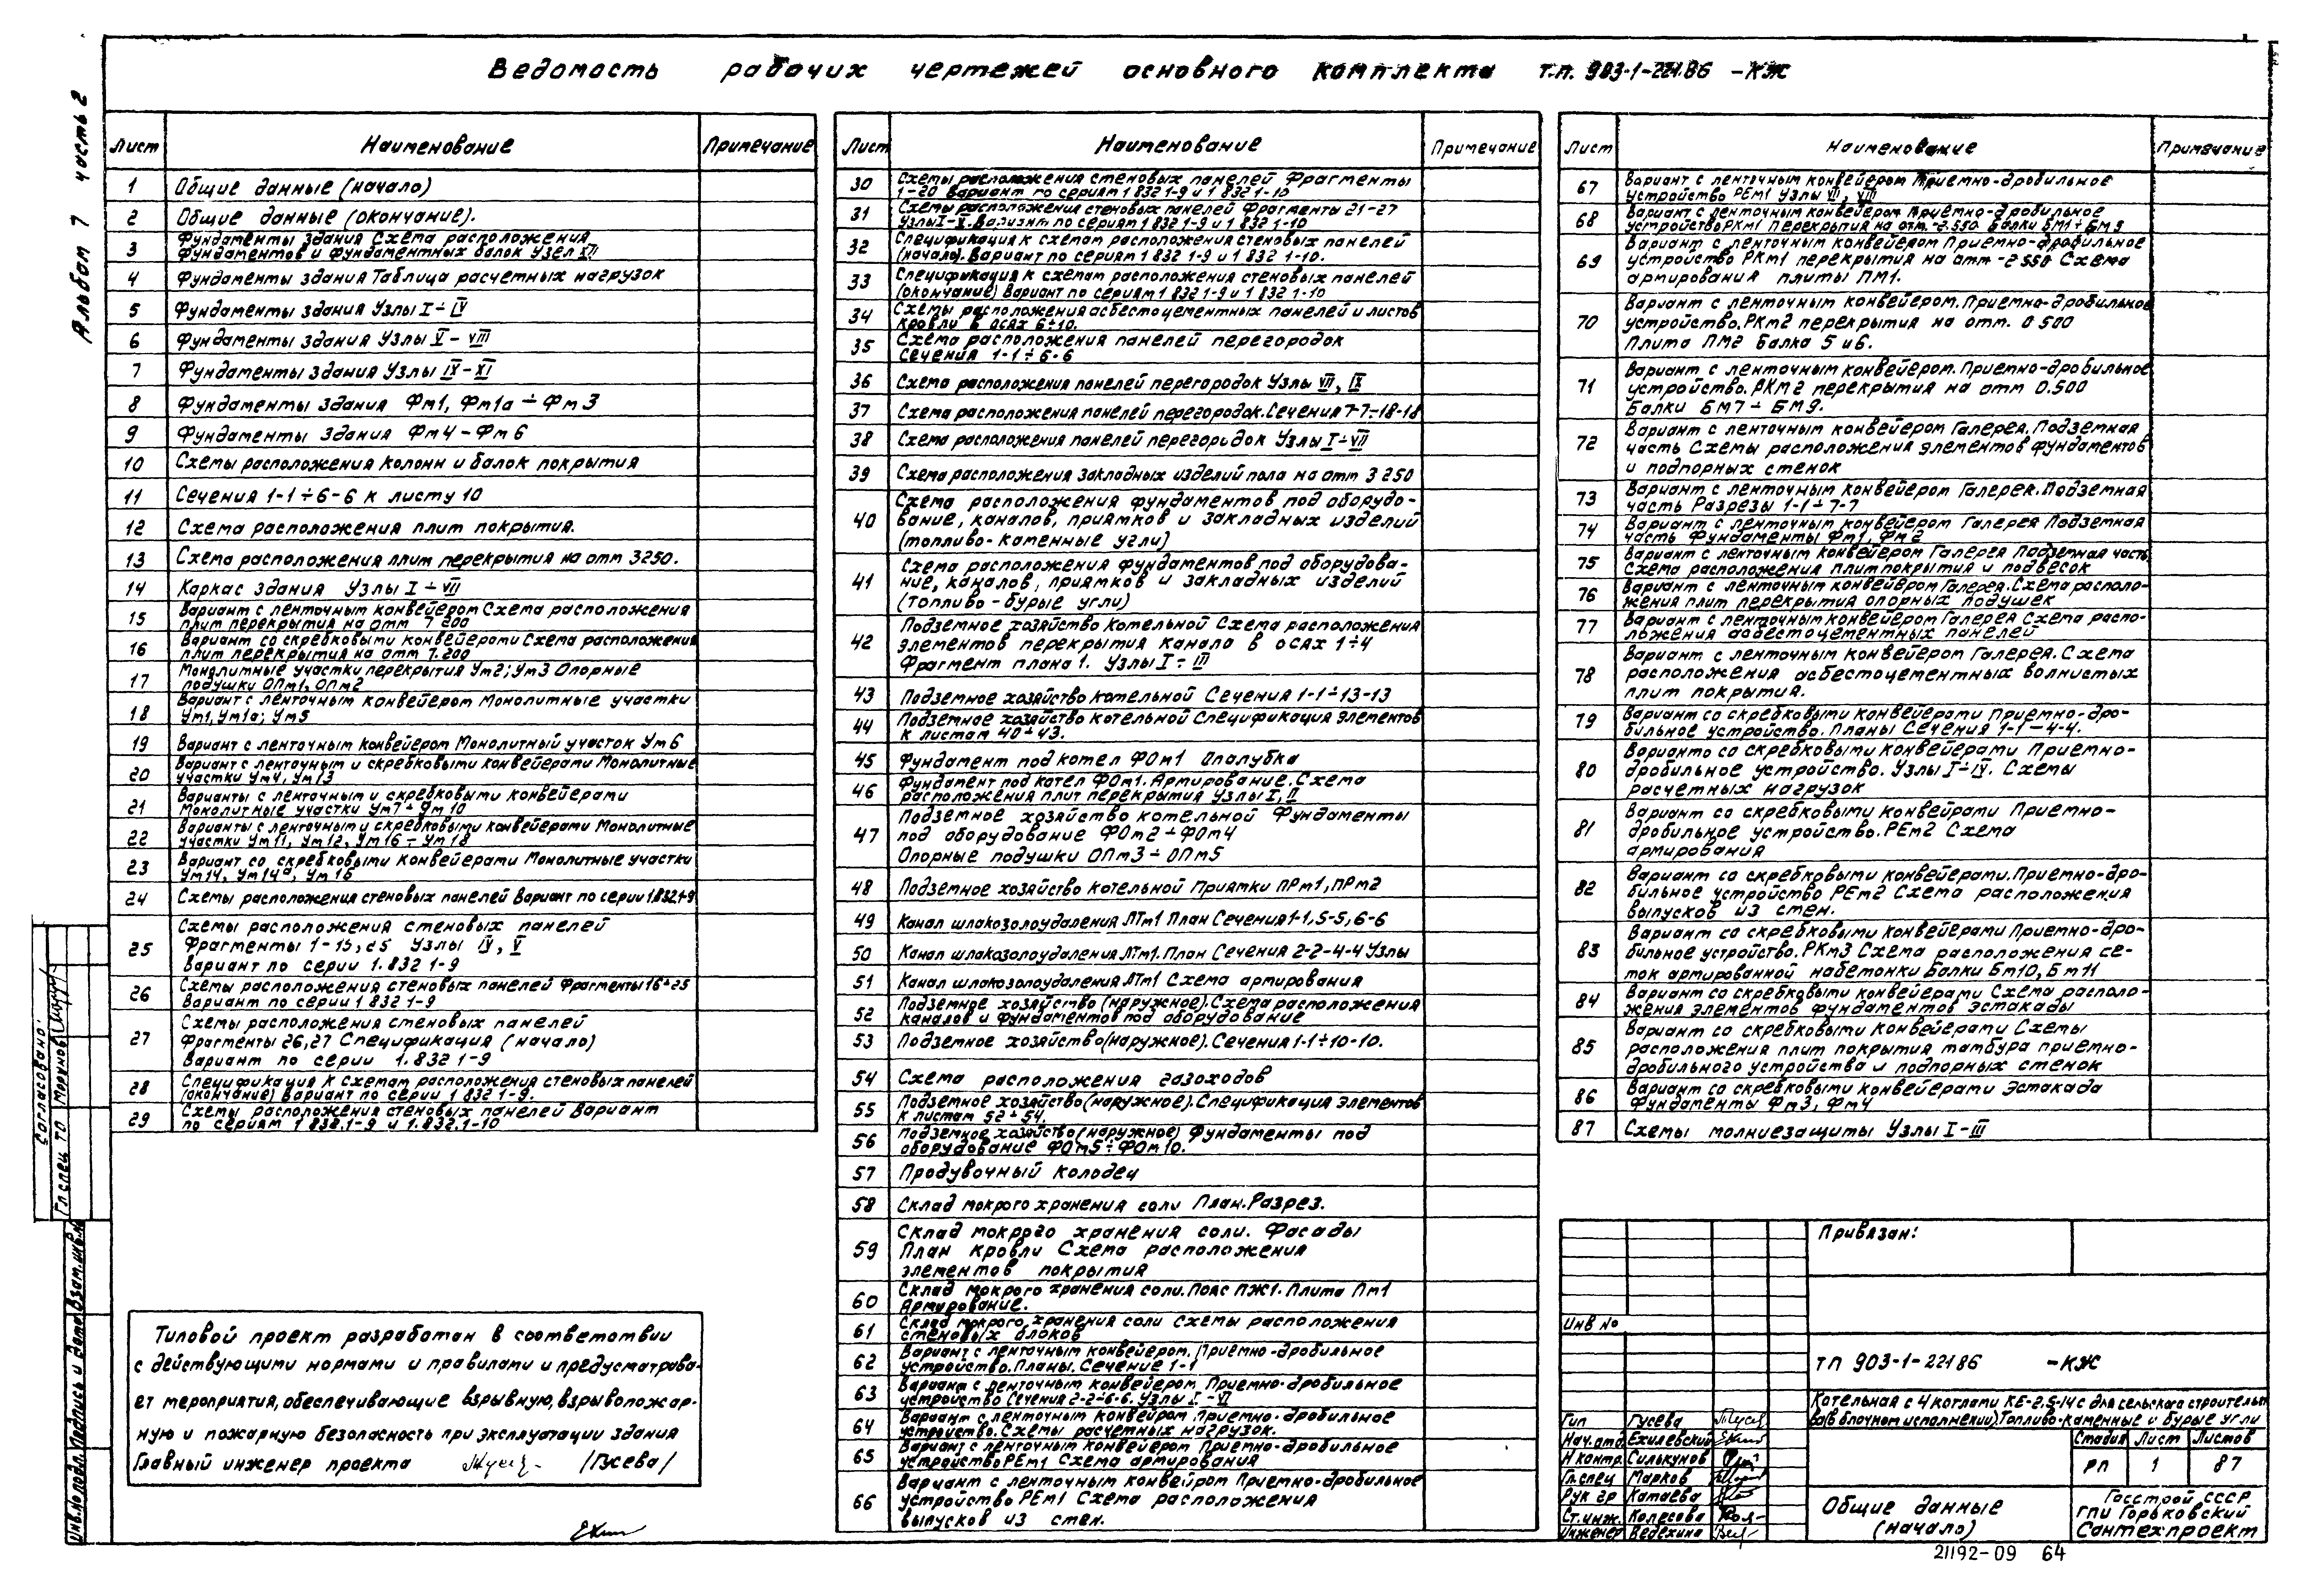 Альбом 7 часть 2
Ведомость рабочих чертежей основного комплекта т.п. 903-1-221.86 -КЖ
Лист Наименование Примечание
1 Общие данные (начало)
2 Общие данные (окончание).
3 Фундаменты здания Схема расположения
фундаментов и фундаментных балок Узел XII
4 Фундаменты здания Таблица расчетных нагрузок
5 Фундаменты здания Узлы I÷IV
6 Фундаменты здания Узлы V-VIII
7 Фундаменты здания Узлы IX-XI
8 Фундаменты здания Фм1, Фм1а÷Фм3
9 Фундаменты здания Фм4-Фм6
10 Схемы расположения колонн и балок покрытия
11 Сечения 1-1÷6-6 к листу 10
12 Схема расположения плит покрытия.
13 Схема расположения плит перекрытия на отм 3250.
14 Каркас здания Узлы I÷VII
15 Вариант с ленточным конвейером Схема расположения
плит перекрытия на отм 7 200
16 Вариант со скребковыми конвейерами Схема расположения
плит перекрытия на отм 7.200
17 Монолитные участки перекрытия Ум2; Ум3 Опорные
подушки ОПм1, ОПм2
18 Вариант с ленточным конвейером Монолитные участки
Ум1, Ум1а; Ум5
19 Вариант с ленточным конвейером Монолитный участок Ум6
20 Вариант с ленточным и скребковыми конвейерами Монолитные
участки Ум4, Ум13
21 Варианты с ленточным и скребковыми конвейерами
Монолитные участки Ум7÷Ум10
22 Варианты с ленточным и скребковыми конвейерами Монолитные
участки Ум11, Ум12, Ум16-Ум18
23 Вариант со скребковыми конвейерами Монолитные участки
Ум14, Ум14а, Ум15
24 Схемы расположения стеновых панелей Вариант по серии 1.832.1-9
25 Схемы расположения стеновых панелей
Фрагменты 1-15, 25 Узлы IV, V
Вариант по серии 1.832 1-9
26 Схемы расположения стеновых панелей Фрагменты 16÷25
Вариант по серии 1 832 1-9
27 Схемы расположения стеновых панелей
Фрагменты 26,27 Спецификация (начало)
Вариант по серии 1.832 1-9
28 Спецификация к схемам расположения стеновых панелей
(окончание) Вариант по серии 1 832 1-9.
29 Схемы расположения стеновых панелей Вариант
по сериям 1 832.1-9 и 1.832.1-10
Лист Наименование Примечание
30 Схемы расположения стеновых панелей Фрагменты
1-20 Вариант по сериям 1 832 1-9 и 1 832 1-10
31 Схемы расположения стеновых панелей Фрагменты 21-27
Узлы I-X. Вариант по сериям 1 832 1-9 и 1 832 1-10
32 Спецификация к схемам расположения стеновых панелей
(начало). Вариант по сериям 1 832 1-9 и 1 832 1-10.
33 Спецификация к схемам расположения стеновых панелей
(окончание) Вариант по сериям 1 832 1-9 и 1 832 1-10
34 Схемы расположения асбестоцементных панелей и листов
кровли в осях 6÷10.
35 Схема расположения панелей перегородок
Сечения 1-1÷6-6
36 Схема расположения панелей перегородок Узлы VII, IX
37 Схема расположения панелей перегородок. Сечения 7-7-18-18
38 Схема расположения панелей перегородок Узлы I÷VII
39 Схема расположения закладных изделий пола на отм 3 250
40 Схема расположения фундаментов под оборудо-
вание, каналов, приямков и закладных изделий
(топливо-каменные угли)
41 Схема расположения фундаментов под оборудова-
ние, каналов, приямков и закладных изделий
(топливо-бурые угли)
42 Подземное хозяйство котельной Схема расположения
элементов перекрытия канала в осях 1÷4
Фрагмент плана 1. Узлы I÷III
43 Подземное хозяйство котельной Сечения 1-1÷13-13
44 Подземное хозяйство котельной Спецификация элементов
к листам 40÷43.
45 Фундамент под котел ФОм1 Опалубка
46 Фундамент под котел ФОм1. Армирование. Схема
расположения плит перекрытия Узлы I, II
47 Подземное хозяйство котельной Фундаменты
под оборудование ФОм2÷ФОм4
Опорные подушки ОПм3÷ОПм5
48 Подземное хозяйство котельной Приямки ПРм1, ПРм2
49 Канал шлакозолоудаления ЛТм1 План Сечения 1-1, 5-5, 6-6
50 Канал шлакозолоудаления ЛТм1. План Сечения 2-2-4-4 Узлы
51 Канал шлакозолоудаления ЛТм1 Схема армирования
52 Подземное хозяйство (наружное). Схема расположения
каналов и фундаментов под оборудование
53 Подземное хозяйство (наружное). Сечения 1-1÷10-10.
54 Схема расположения газоходов
55 Подземное хозяйство (наружное). Спецификация элементов
к листам 52÷54.
56 Подземное хозяйство (наружное) Фундаменты под
оборудование ФОм5÷ФОм10.
57 Продувочный колодец
58 Склад мокрого хранения соли План. Разрез.
59 Склад мокрого хранения соли. Фасады
План кровли Схема расположения
элементов покрытия
60 Склад мокрого хранения соли. Пояс ПЖ1. Плита Пм1
Армирование.
61 Склад мокрого хранения соли Схемы расположения
стеновых блоков
62 Вариант с ленточным конвейером. Приемно-дробильное
устройство. Планы. Сечение 1-1
63 Вариант с ленточным конвейером Приемно-дробильное
устройство Сечения 2-2÷6-6. Узлы I-VI
64 Вариант с ленточным конвейером Приемно-дробильное
устройство. Схемы расчетных нагрузок.
65 Вариант с ленточным конвейером Приемно-дробильное
устройство РЕм1 Схема армирования
66 Вариант с ленточным конвейером Приемно-дробильное
устройство РЕм1 Схема расположения
выпусков из стен.
Лист Наименование Примечание
67 Вариант с ленточным конвейером Приемно-дробильное
устройство РЕм1 Узлы VII, VIII
68 Вариант с ленточным конвейером Приемно-дробильное
устройство РКм1 перекрытия на отм. -2.550 Балки БМ1÷БМ5
69 Вариант с ленточным конвейером Приемно-дробильное
устройство РКм1 перекрытия на отм -2 550 Схема
армирования плиты ПМ1.
70 Вариант с ленточным конвейером. Приемно-дробильное
устройство. РКм2 перекрытия на отм. 0 500
Плита ПМ2 Балка 5 и 6.
71 Вариант с ленточным конвейером. Приемно-дробильное
устройство. РКм2 перекрытия на отм 0.500
Балки БМ7÷БМ9.
72 Вариант с ленточным конвейером Галерея. Подземная
часть Схемы расположения элементов фундаментов
и подпорных стенок
73 Вариант с ленточным конвейером Галерея. Подземная
часть Разрезы 1-1÷7-7
74 Вариант с ленточным конвейером Галерея Подземная
часть Фундаменты Фм1, Фм2
75 Вариант с ленточным конвейером Галерея Подземная часть
Схема расположения плит покрытия и подвесок
76 Вариант с ленточным конвейером Галерея. Схема располо-
жения плит перекрытия опорных подушек
77 Вариант с ленточным конвейером Галерея Схема распо-
ложения асбестоцементных панелей
78 Вариант с ленточным конвейером Галерея. Схема
расположения асбестоцементных волнистых
плит покрытия.
79 Вариант со скребковыми конвейерами Приемно-дро-
бильное устройство. Планы Сечения 1-1-4-4.
80 Варианта со скребковыми конвейерами Приемно-
дробильное устройство. Узлы I÷IV. Схемы
расчетных нагрузок
81 Вариант со скребковыми конвейрами Приемно-
дробильное устройство. РЕм2 Схема
армирования
82 Вариант со скребковыми конвейерами. Приемно-дро-
бильное устройство РЕм2 Схема расположения
выпусков из стен.
83 Вариант со скребковыми конвейерами Приемно-дро-
бильное устройство. РКм3 Схема расположения се-
ток армированной набетонки Балки Бм10, Бм11
84 Вариант со скребковыми конвейерами Схема располо-
жения элементов фундаментов эстакады
85 Вариант со скребковыми конвейерами Схемы
расположения плит покрытия тамбура приемно-
дробильного устройства и подпорных стенок
86 Вариант со скребковыми конвейерами Эстакада
Фундаменты Фм3, Фм4
87 Схемы молниезащиты Узлы I-III
Типовой проект разработан в соответствии
с действующими нормами и правилами и предусматрива-
ет мероприятия, обеспечивающие взрывную, взрывопожар-
ную и пожарную безопасность при эксплуатации здания
Главный инженер проекта /Гусева/
Согласовано:
Гл спец ТО
Инв. № подл. Подпись и дата Взам. инв. №
Привязан:
Инв №
ТП 903-1-22186 -КЖ
Котельная с 4 котлами КЕ-2.5-14с для сельского строительст-
ва (в блочном исполнении). Топливо-каменные и бурые угли
Гип Гусева
Нач. отд Ехилевский
Н контр. Силькунов
Гл. спец Марков
Рук гр Катаева
Ст. инж. Колесова
Инженер Ведехина
Стадия Лист Листов
РП 1 87
Общие данные
(начало)
Госстрой СССР
ГПИ Горьковский
Сантехпроект
21192-09 64